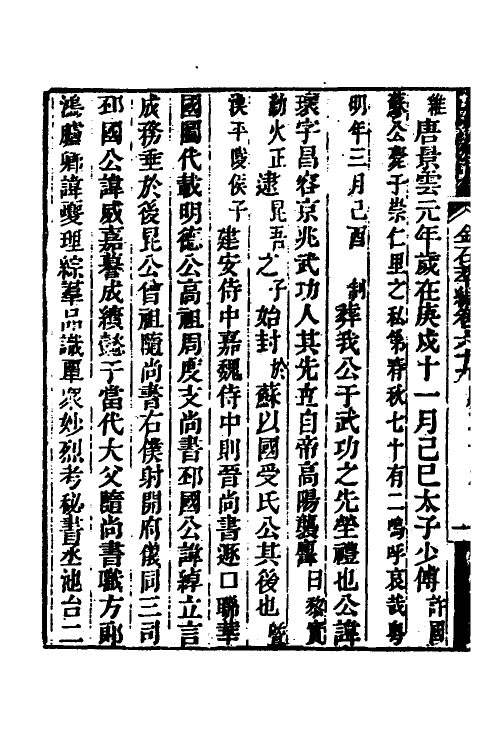 雍唐景雲元年歲在庚戌十一月己巳太子少傅許國
蘇公薨于崇仁里之私第春秋七十有二嗚呼哀哉粵
明年三月己酉 制葬我公于武功之先塋禮也公諱
瓌字昌容京兆武功人其先立自帝高陽襲 曰黎實
勤火正逮昆吾之子始封於蘇以國受氏公其後也曁
侯平陵侯子建安侍中嘉魏侍中則晉尚書遂口聯華
國圖代載明德公高祖周度支尚書邳國公諱綽立言
成務垂於後昆公曾祖隨尚書右僕射開府儀同三司
邳國公諱威嘉謩成績懿于當代大父隨尚書職方郎
鴻臚卿諱夔理綜羣品識單衆妙烈考秘書丞池台二
金石萃編卷六十九